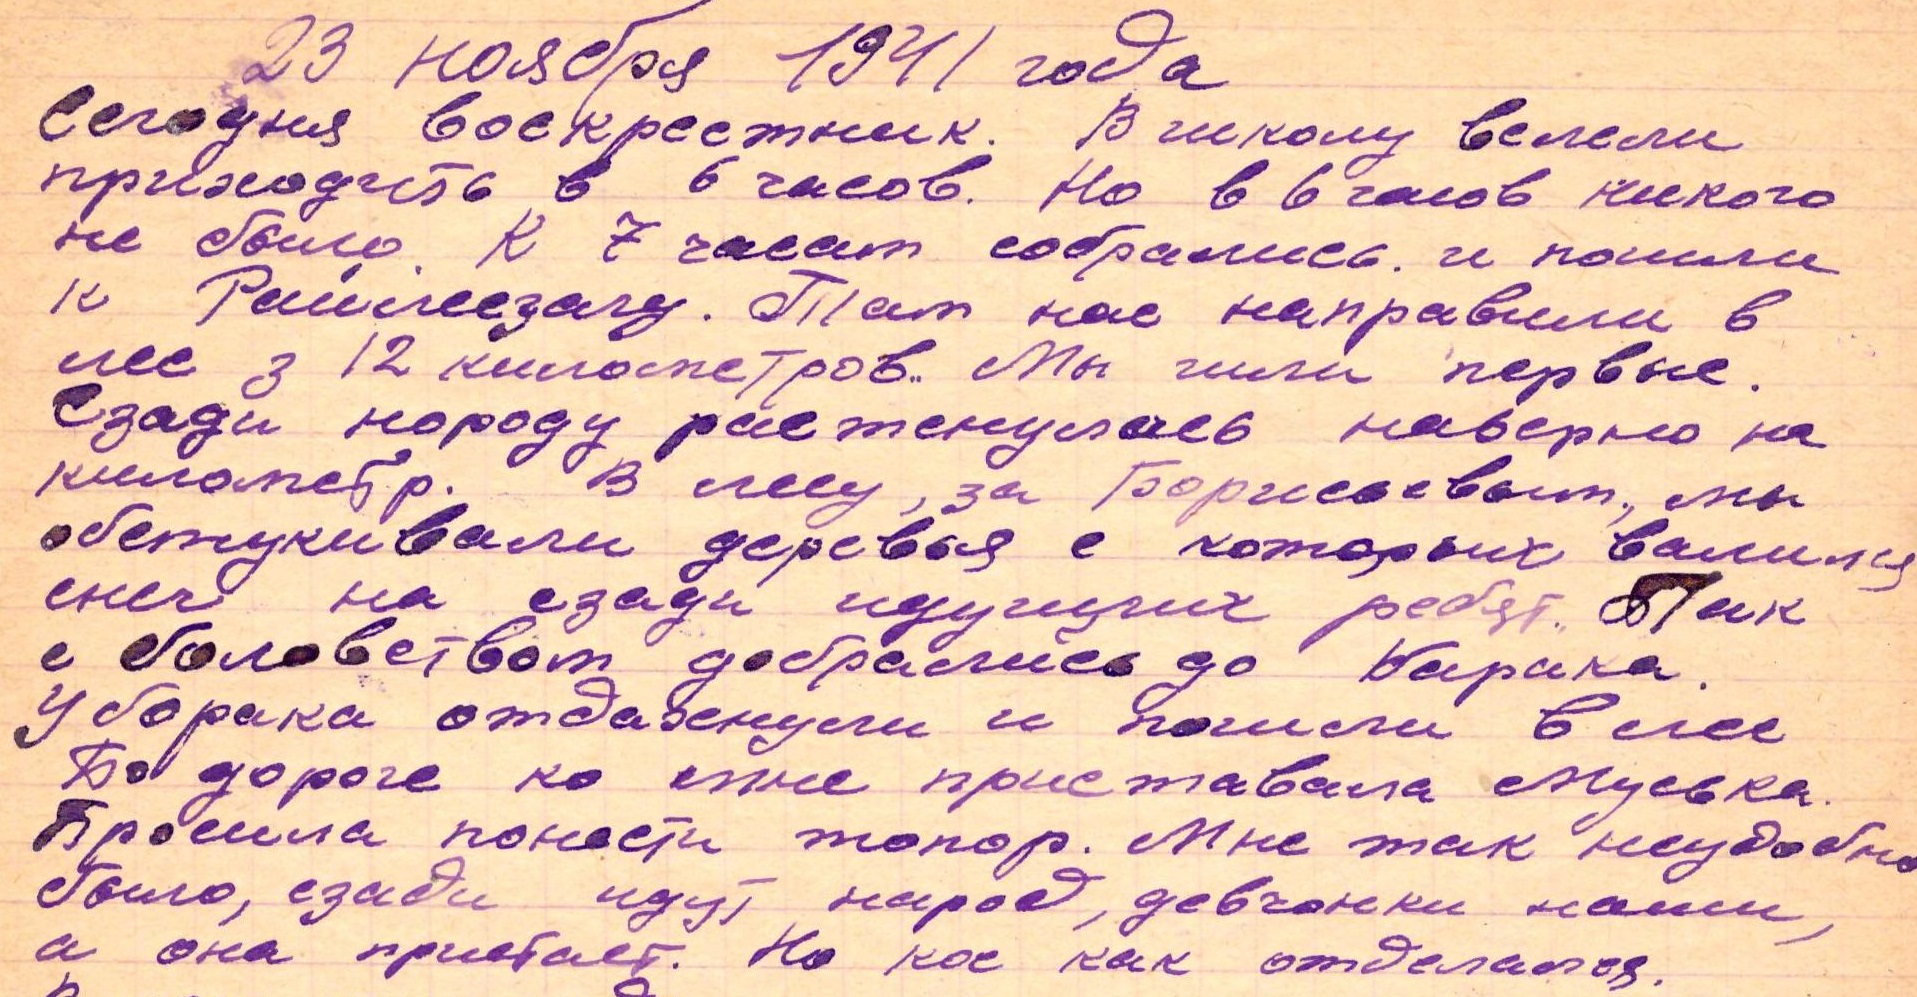 23 ноября 1941 года
Сегодня воскрестник. В школу велели
приходить в 6 часов. Но в 6 часов никого
не было. К 7 часам собрались. и пошли
к Раймлесзагу. Там нас направили в
лес з 12 километров.. Мы шли первые.
Сзади народу растенулась наверно на
километр. В лесу, за Борисоевым, мы
обстукивали деревья с которых валился
снег на сзади идущих ребят. Так
с баловством добрались до барака.
У барака отдахнули и пошли в лес
По дороге ко мне приставала Муська.
Просила понести топор. Мне так неудобно
было, сзади идут народ, девчонки наши,
а она пристает. Но кое как отделался.